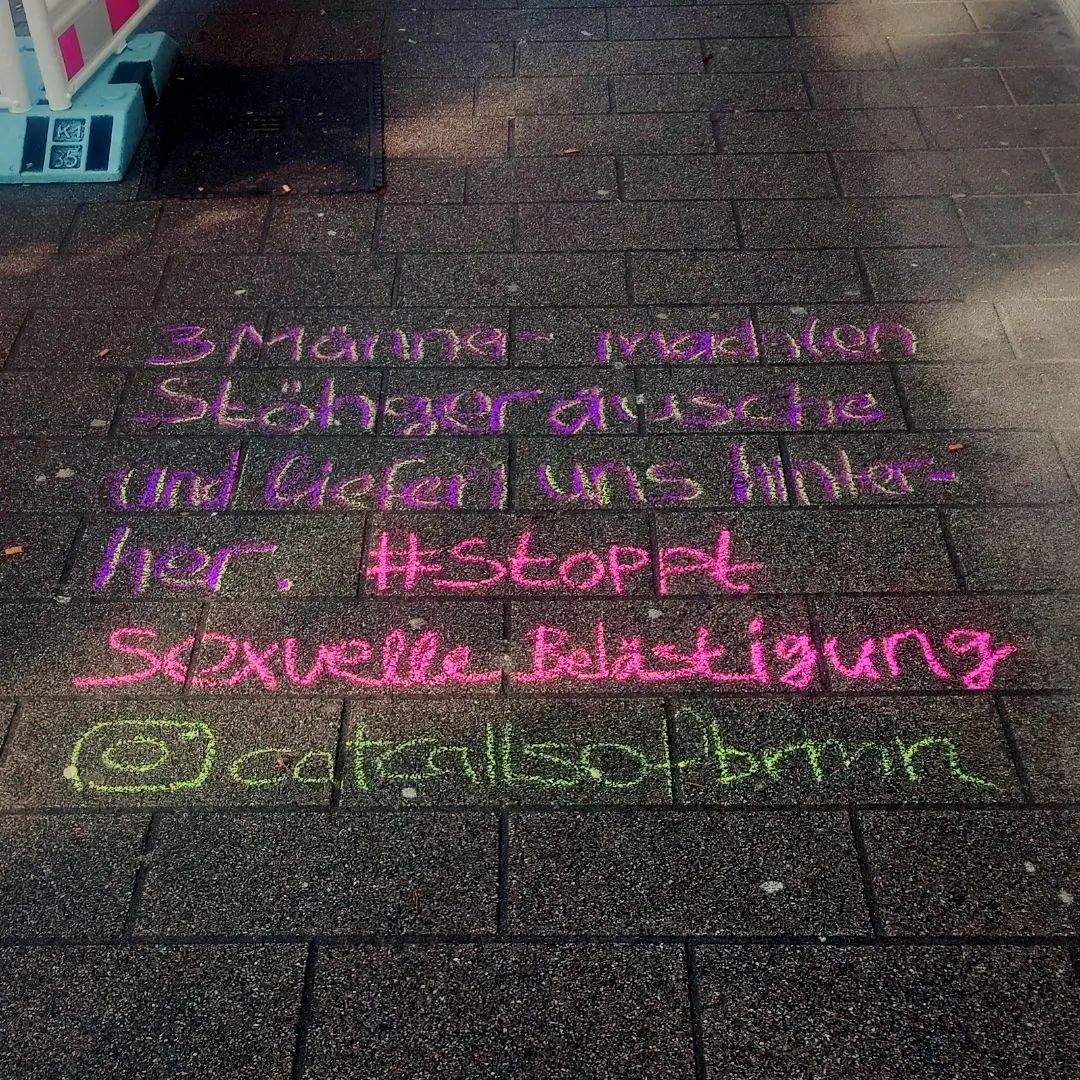 K1
35
3 Männer machten
Stöhgeräusche
und liefen uns hinter-
her. #Stoppt
sexuelle Belästigung
catcallsofbrmn